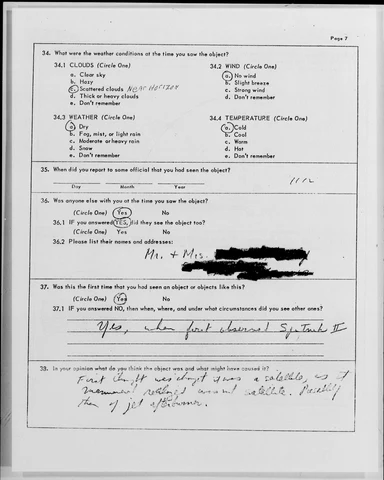 Page 7
34. What were the weather conditions at the time you saw the object?
34.1 CLOUDS (Circle One)
a. Clear sky
b. Hazy
c. Scattered clouds Near Horizon
d. Thick or heavy clouds
e. Don't remember
34.2 WIND (Circle One)
a. No wind
b. Slight breeze
c. Strong wind
d. Don't remember
34.3 WEATHER (Circle One)
a. Dry
b. Fog, mist, or light rain
c. Moderate or heavy rain
d. Snow
e. Don't remember
34.4 TEMPERATURE (Circle One)
a. Cold
b. Cool
c. Warm
d. Hot
e. Don't remember
35. When did you report to some official that you had seen the object?
Day Month Year
36. Was anyone else with you at the time you saw the object?
(Circle One) Yes No
36.1 IF you answered YES, did they see the object too?
(Circle One) Yes No
36.2 Please list their names and addresses:
Mr. + Mrs.
37. Was this the first time that you had seen an object or objects like this?
(Circle One) Yes No
37.1 IF you answered NO, then when, where, and under what circumstances did you see other ones?
Yes, when first observed Sputnik II
38. In your opinion what do you think the object was and what might have caused it?
First thought was that it was a satellite, as it
satellite. Possibly
of jet afterburner.